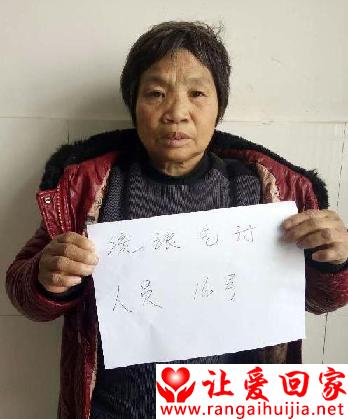 流浪乞讨
人员 16号
让爱回家
www.rangaihuijia.net